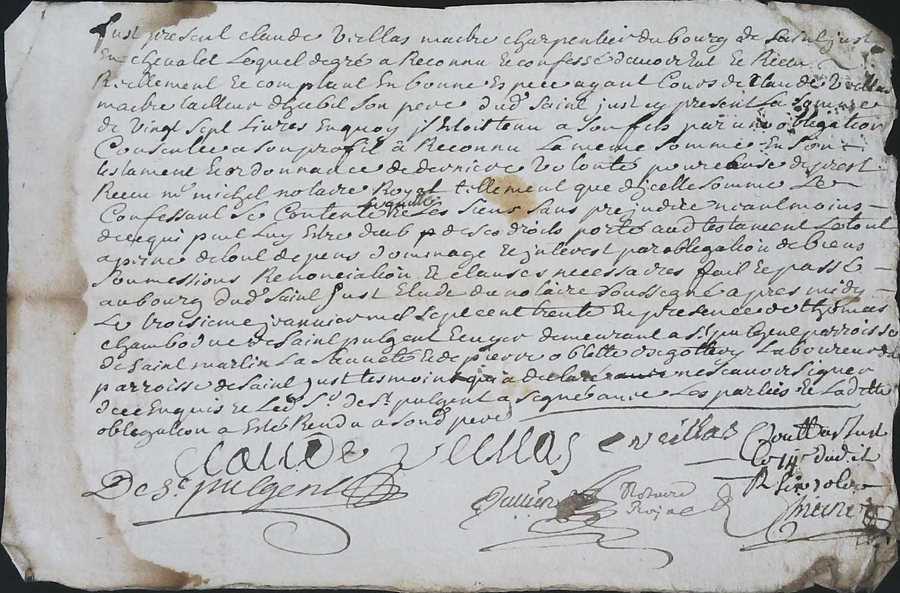 fust present claude Viallas maitre charpentier du bourg de Saint just
En chevalet Lequel de gré a Reconnu et confessé d'avoir Eut et Receu
Reellement et comptant En bonne Espece ayant Cours de Claude Viallas
maitre tailleur d'habil Son pere dud Saint just icy present La Somme
de Vingt Sept Livres En quoy il Estoit tenu a Son fils par une obligation
Consentie a Son profit a Reconnu La meme Somme En Son
testament Et ordonnance de derniere Volonté pour cause de prest
Receu me michel notaire Royal tellement que d'icelle Somme Le
Confessant Se Contente Et Les Siens Sans prejudice neanmoins
de ce qui peut Luy Estre deub de Ses droits porté aud testament Le tout
a peine de tout depens domage Et interest par obligation de biens
Soumessions Renonciation Et clauses necessaires fait Et passé
au bourg dud Saint Just Etude du notaire Soussigné apres midy
Le troisieme janvier mil Sept cent trente En presence de thomas
chambodue de Saint pulgent Ecuyer demeurant a St pulgent parroisse
de Saint martin La Sauveté Et de pierre oblette de gottery Laboureur de
parroisse de Saint Just tesmoins qui a declaré ne Scavoir Signer
de ce Enquis Et Led Sr de St pulgent a Signé avec Les parties Et Ladite
obligation a Esté Rendu a Sond pere
claude Viallas c viallas Controllé a St Just
De St pulgent Le 14e dudit
notaire Royal R